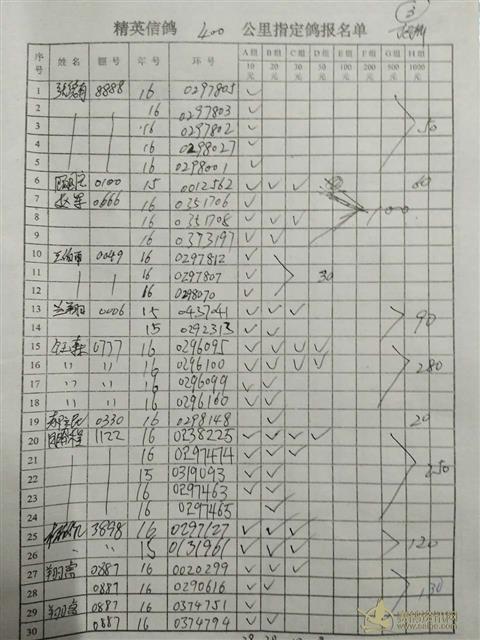 ③
精英信鸽 400 公里指定鸽报名单
序号 姓名 棚号 年号 环号 A组 B组 C组 D组 E组 F组 G组 H组
10元 20元 30元 50元 100元 200元 500元 1000元
1 8888 16 0297805 ✓
2 16 0297803 ✓
3 16 0297802 ✓ 50
4 16 0298027 ✓
5 16 0298001 ✓
6 0100 15 0012562 ✓ ✓ ✓ 60
7 赵军 0666 16 0351706 ✓ ✓
8 16 0351708 ✓ ✓ ✓ 100
9 16 0373197 ✓ ✓
10 0049 16 0297812 ✓
11 16 0297807 ✓ 30
12 16 0298070 ✓
13 兰翔 0006 15 0437041 ✓ ✓ ✓
14 15 0292313 ✓ ✓ 90
15 0777 16 0296095 ✓ ✓ ✓ ✓
16 〃 〃 16 0296100 ✓ ✓ ✓ ✓ 280
17 〃 〃 16 0296099 ✓ ✓
18 〃 〃 16 0296160 ✓ ✓
19 0330 16 0298148 ✓ 20
20 1122 16 0238225 ✓ ✓ ✓ ✓
21 16 0297474 ✓ ✓ ✓
22 15 0319093 ✓ ✓ 250
23 16 0297463 ✓ ✓
24 16 0297465 ✓
25 3898 16 0297127 ✓ ✓ ✓
26 〃 〃 15 0131961 ✓ ✓ ✓ 120
27 翔高 0887 16 0020299 ✓ ✓ ✓
28 0887 16 0290616 ✓ ✓ 130
29 翔高 0887 16 0374751 ✓
30 0887 16 0374794 ✓ ✓
www.saige.com